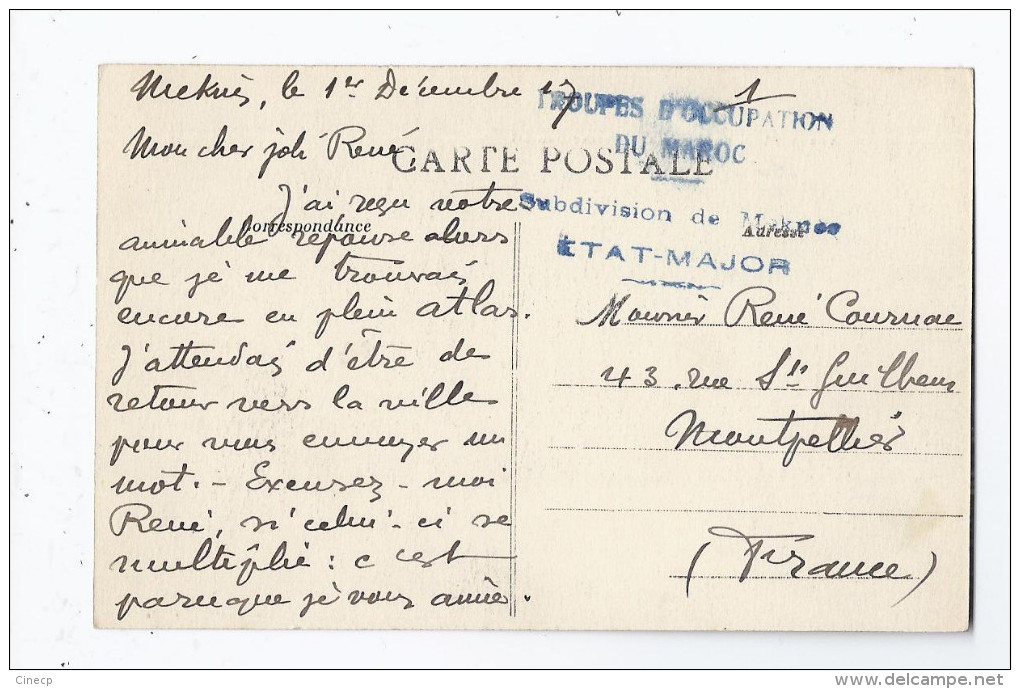 Meknès, le 1er Décembre 17
1
TROUPES D'OCCUPATION
DU MAROC
Mon cher joli René
CARTE POSTALE
Subdivision de Meknès
ÉTAT-MAJOR
Correspondance
Adresse
J'ai reçu votre
aimable réponse alors
que je me trouvais
encore en plein Atlas.
J'attendais d'être de
retour vers la ville
pour vous envoyer un
mot. - Excusez-moi
René, si celui-ci se
multiplie : c'est
parce que je vous aime.
Monsieur René Cournac
43, rue St Guilhem
Montpellier
(France)
Cinecp
www.delcampe.net